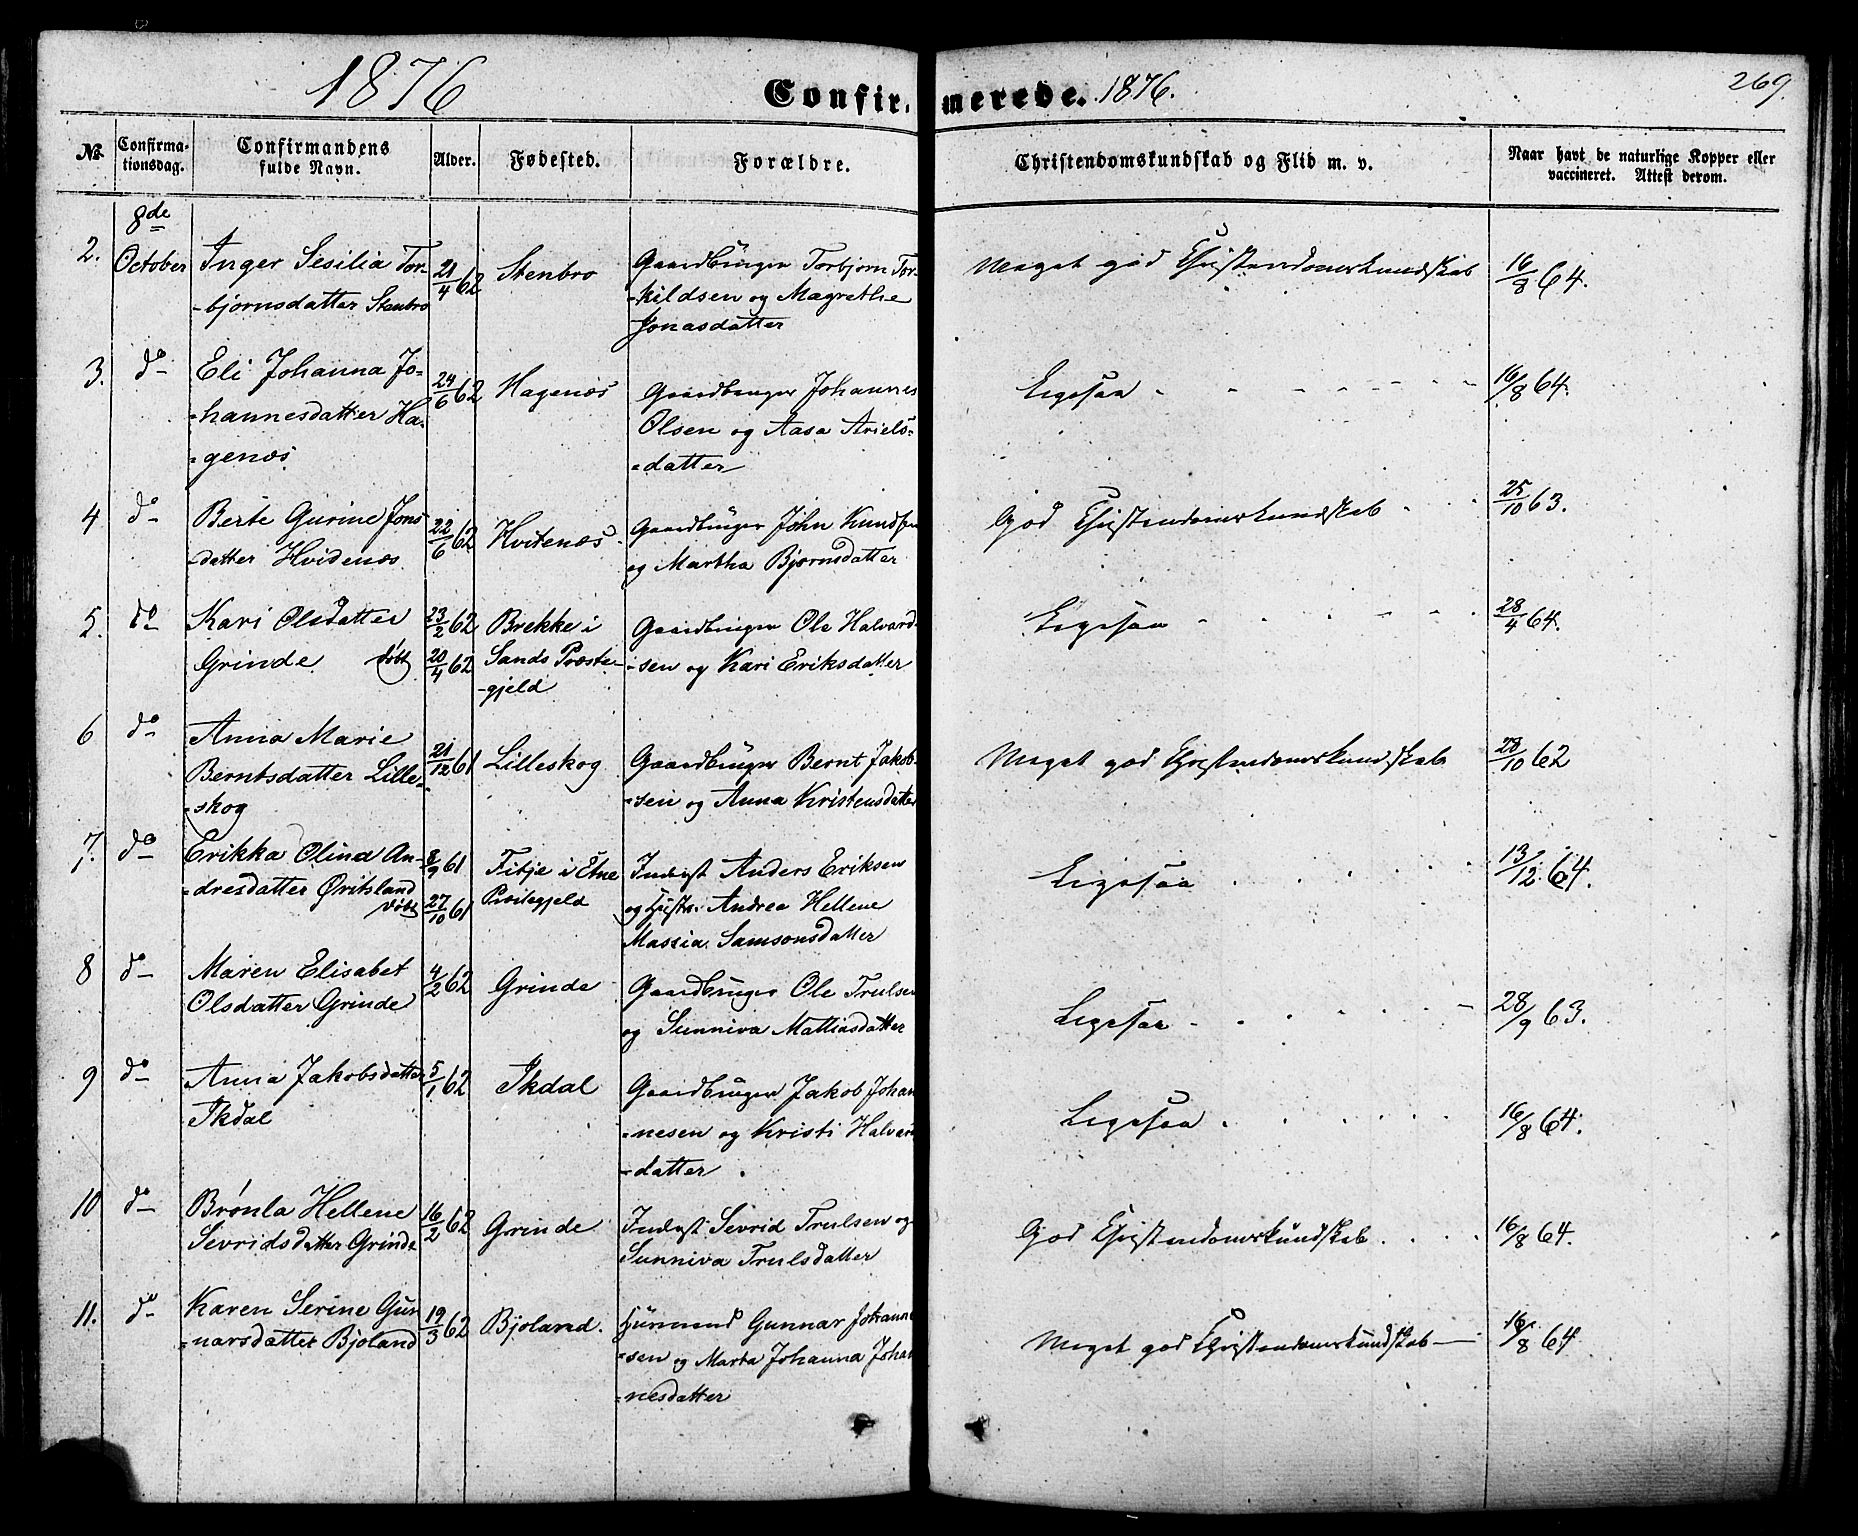 1876
Confirmerede. 1876.
269.
№
Confirma-
tionsdag.
Confirmandens
fulde Navn.
Alder.
Fødested.
Forældre.
Christendomskundskab og Flid m. v.
Naar havt de naturlige Kopper eller
vaccineret. Attest derom.
2.
8de
October
Inger Sesilia Tor-
-bjornsdatter Stenbro
21/4 62
Stenbro
Gaardbruger Torbjorn Tor-
-kildsen og Magrethe
Jonasdatter
Meget god Christendomskundskab
16/8 64.
3.
do
Eli Johanna Jo-
-hannesdatter Ha-
-genæs
24/6 62
Hagenæs
Gaardbruger Johannes
Olsen og Aasa Ariels-
-datter
Ligesaa
16/8 64.
4
do
Berte Gurine Jons
-datter Hvidenæs
22/6 62
Hvitenæs
Gaardbruger John Knudsen
og Martha Bjørnsdatter
God Christendomskundskab
25/10 63.
5.
do
Kari Olsdatter
Grinde døbt
23/2 62
20/4 62
Brekke i
Sands Præste-
-gjeld
Gaardbruger Ole Halvard-
-sen og Kari Eriksdatter
Ligesaa
28/4 64.
6
do
Anna Marie
Berntsdatter Lille-
-skog
21/12 61
Lilleskog
Gaardbruger Bernt Jakob-
-sen og Anna Kristensdatter
Meget god Christendomskundskab
28/10 62
7.
do
Erikka Olina An-
-dresdatter Øritsland
døbt
8/9 61
27/10 61
Fitje i Etne
Præstegjeld
Inderst Anders Eriksen
og Hustr. Andrea Hellene
Massia Samsonsdatter
Ligesaa
13/12 64.
8
do
Maren Elisabet
Olsdatter Grinde
4/2 62
Grinde
Gaardbruger Ole Trulsen
og Sunniva Mathiasdatter
Ligesaa
28/9 63.
9
do
Anna Jakobsdatter
Ikdal
5/1 62
Ikdal
Gaardbruger Jakob Johan
-nesen og Kristi Halvar
-datter
Ligesaa
16/8 64.
10
do
Brønla Hellene
Sevridsdatter Grinde
16/2 62
Grinde
Inderst Sevrid Trulsen og
Sunniva Trulsdatter
God Christendomskundskab
16/8 64.
11.
do
Karen Serine Gun
-narsdatter Bjoland
19/3 62
Bjoland.
Huusmand Gunnar Johanne
-sen og Marta Johanna Johan
-nesdatter
Meget god Christendomskundskab
16/8 64